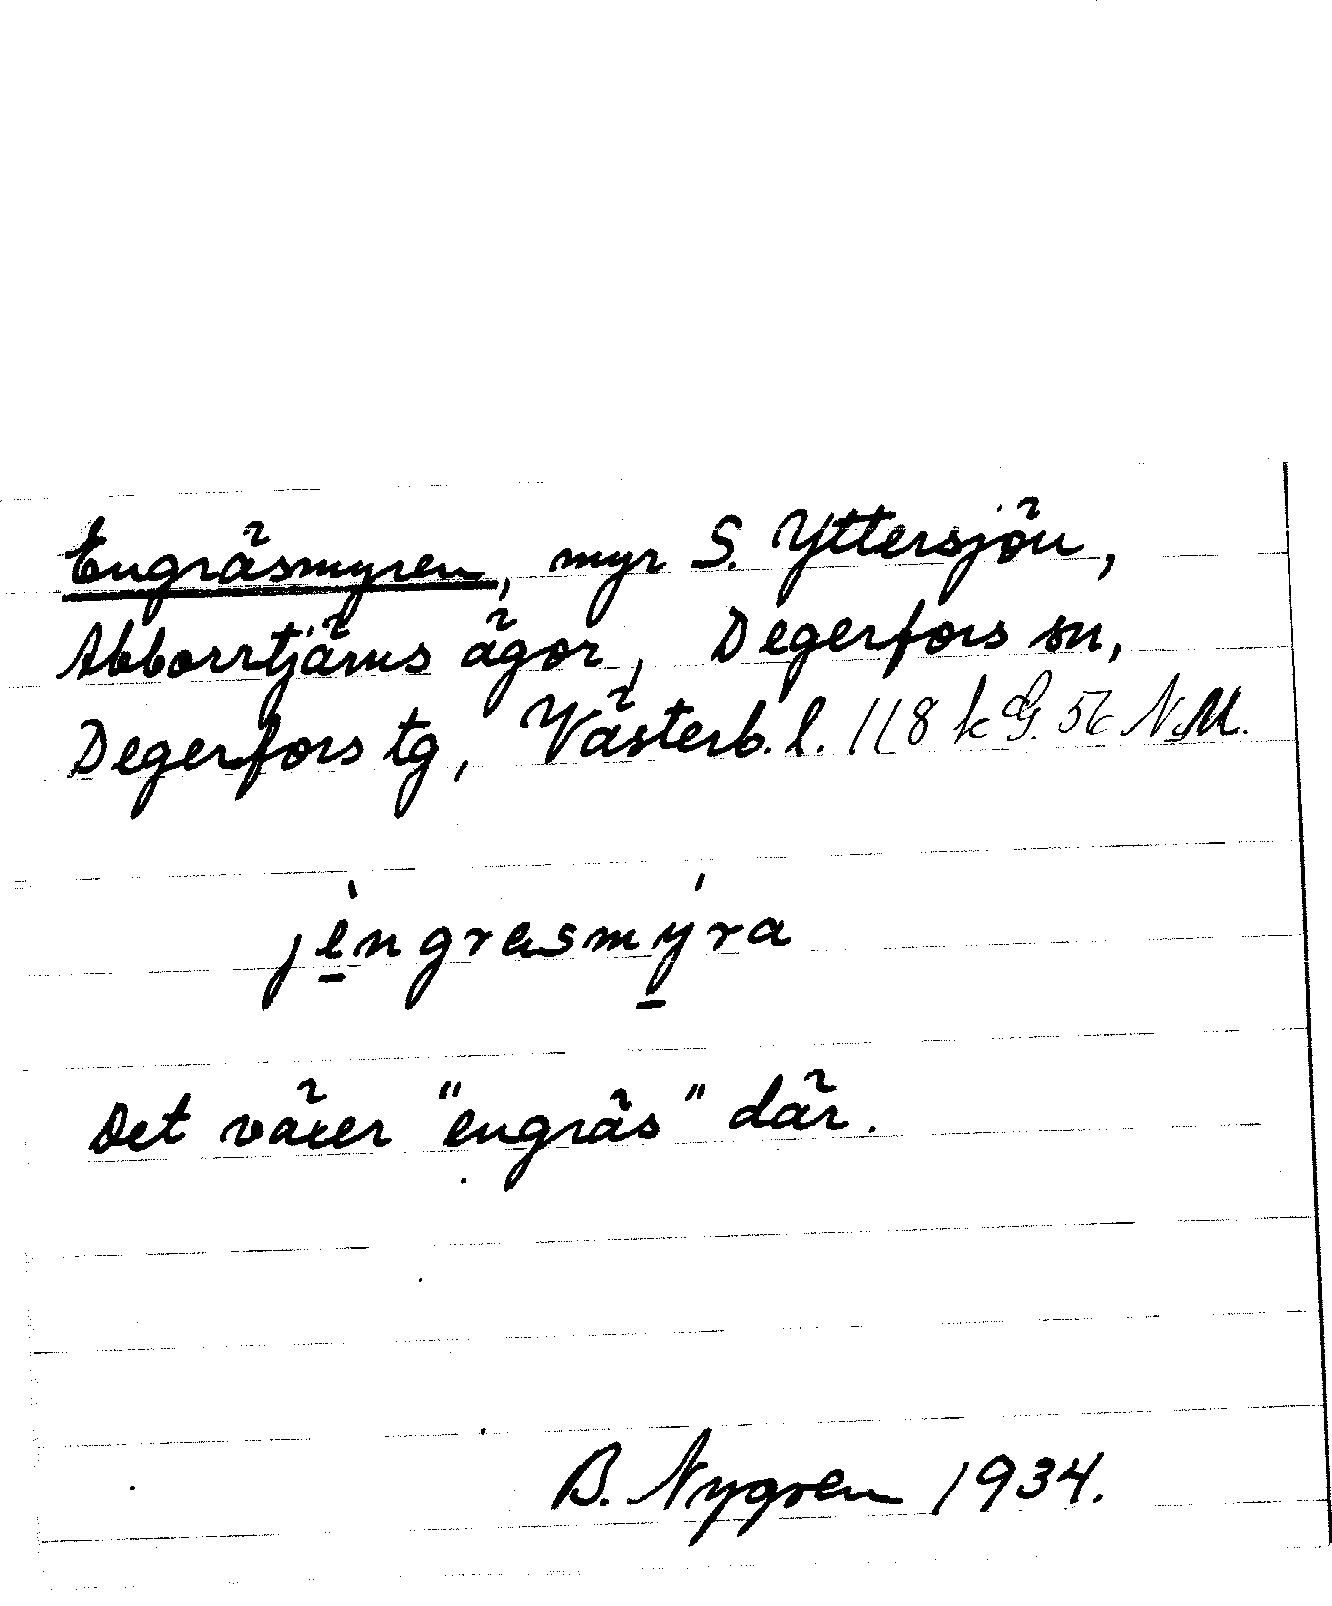 Engräsmyren, myr S. Yttersjön,
Abborrtjärns ägor, Degerfors sn,
Degerfors tg, Västerb. l. 118 k G. 56 N.M.
jèngrasmýra
Det växer "engräs" där.
B. Nygren 1934.